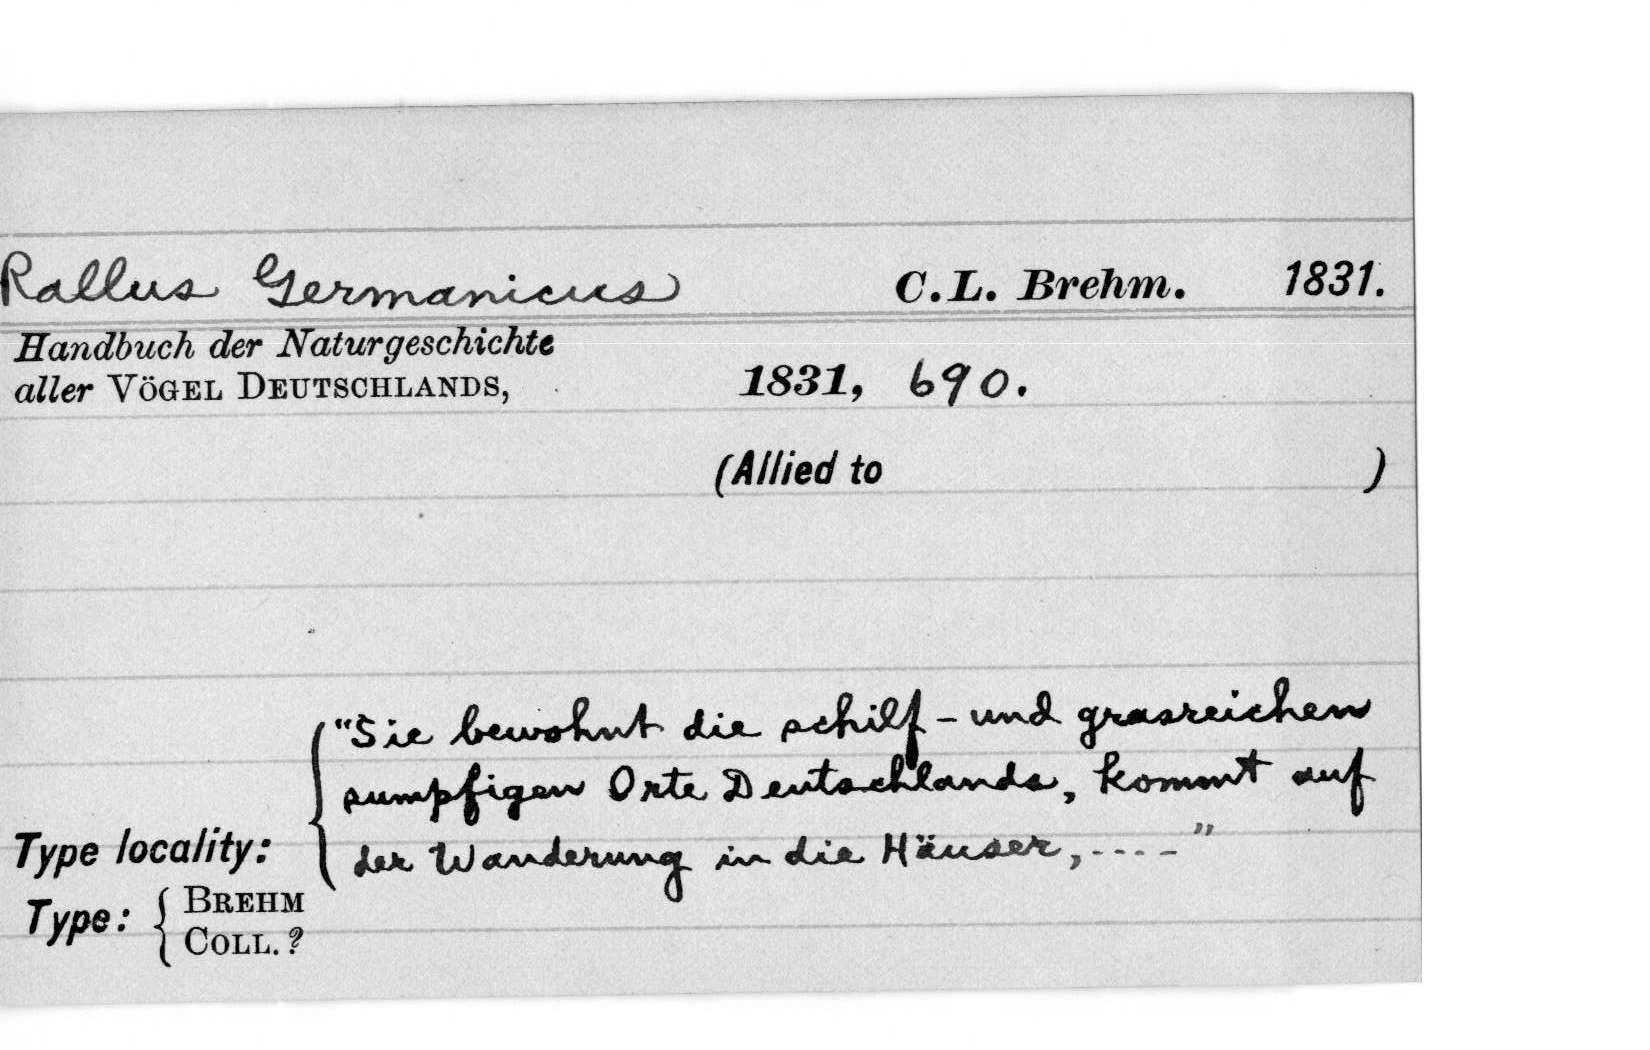 Rallus Germanicus C.L. Brehm. 1831.
Handbuch der Naturgeschichte
aller VÖGEL DEUTSCHLANDS, 1831, 690.
(Allied to )
"Sie bewohnt die schilf- und grasreichen
sumpfigen Orte Deutschlands, kommt auf
Type locality: der Wanderung in die Häuser,...."
Type: BREHM
COLL. ?